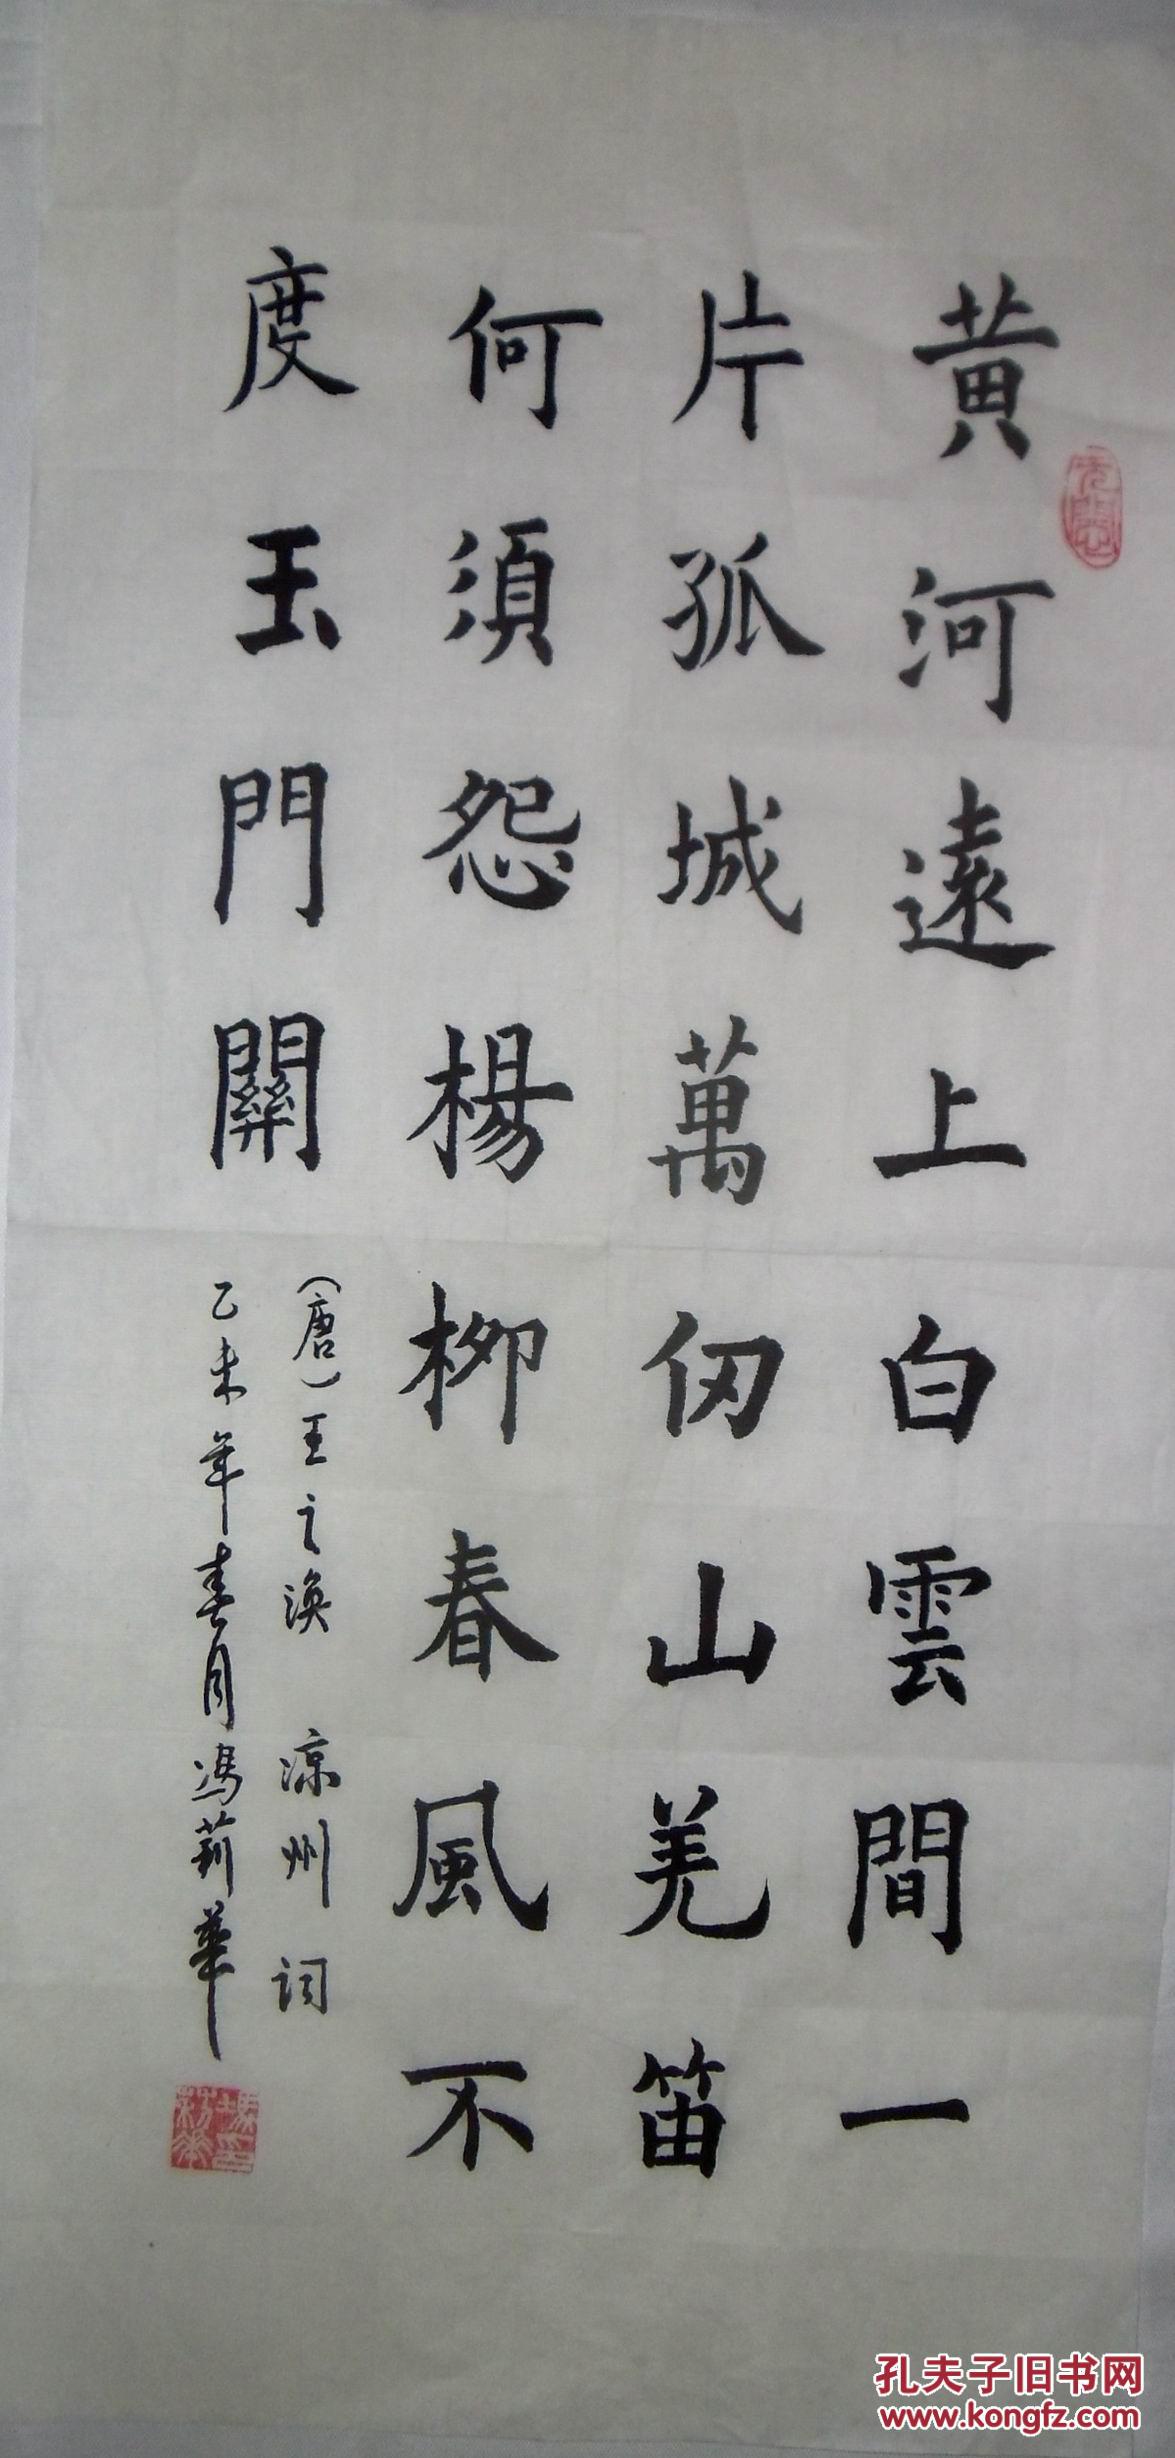 黄河遠上白雲間一
片孤城萬仞山羌笛
何須怨楊柳春風不
度玉門關
(唐)王之渙 凉州词
乙未年春月冯莉華
孔夫子旧书网
www.kongfz.com